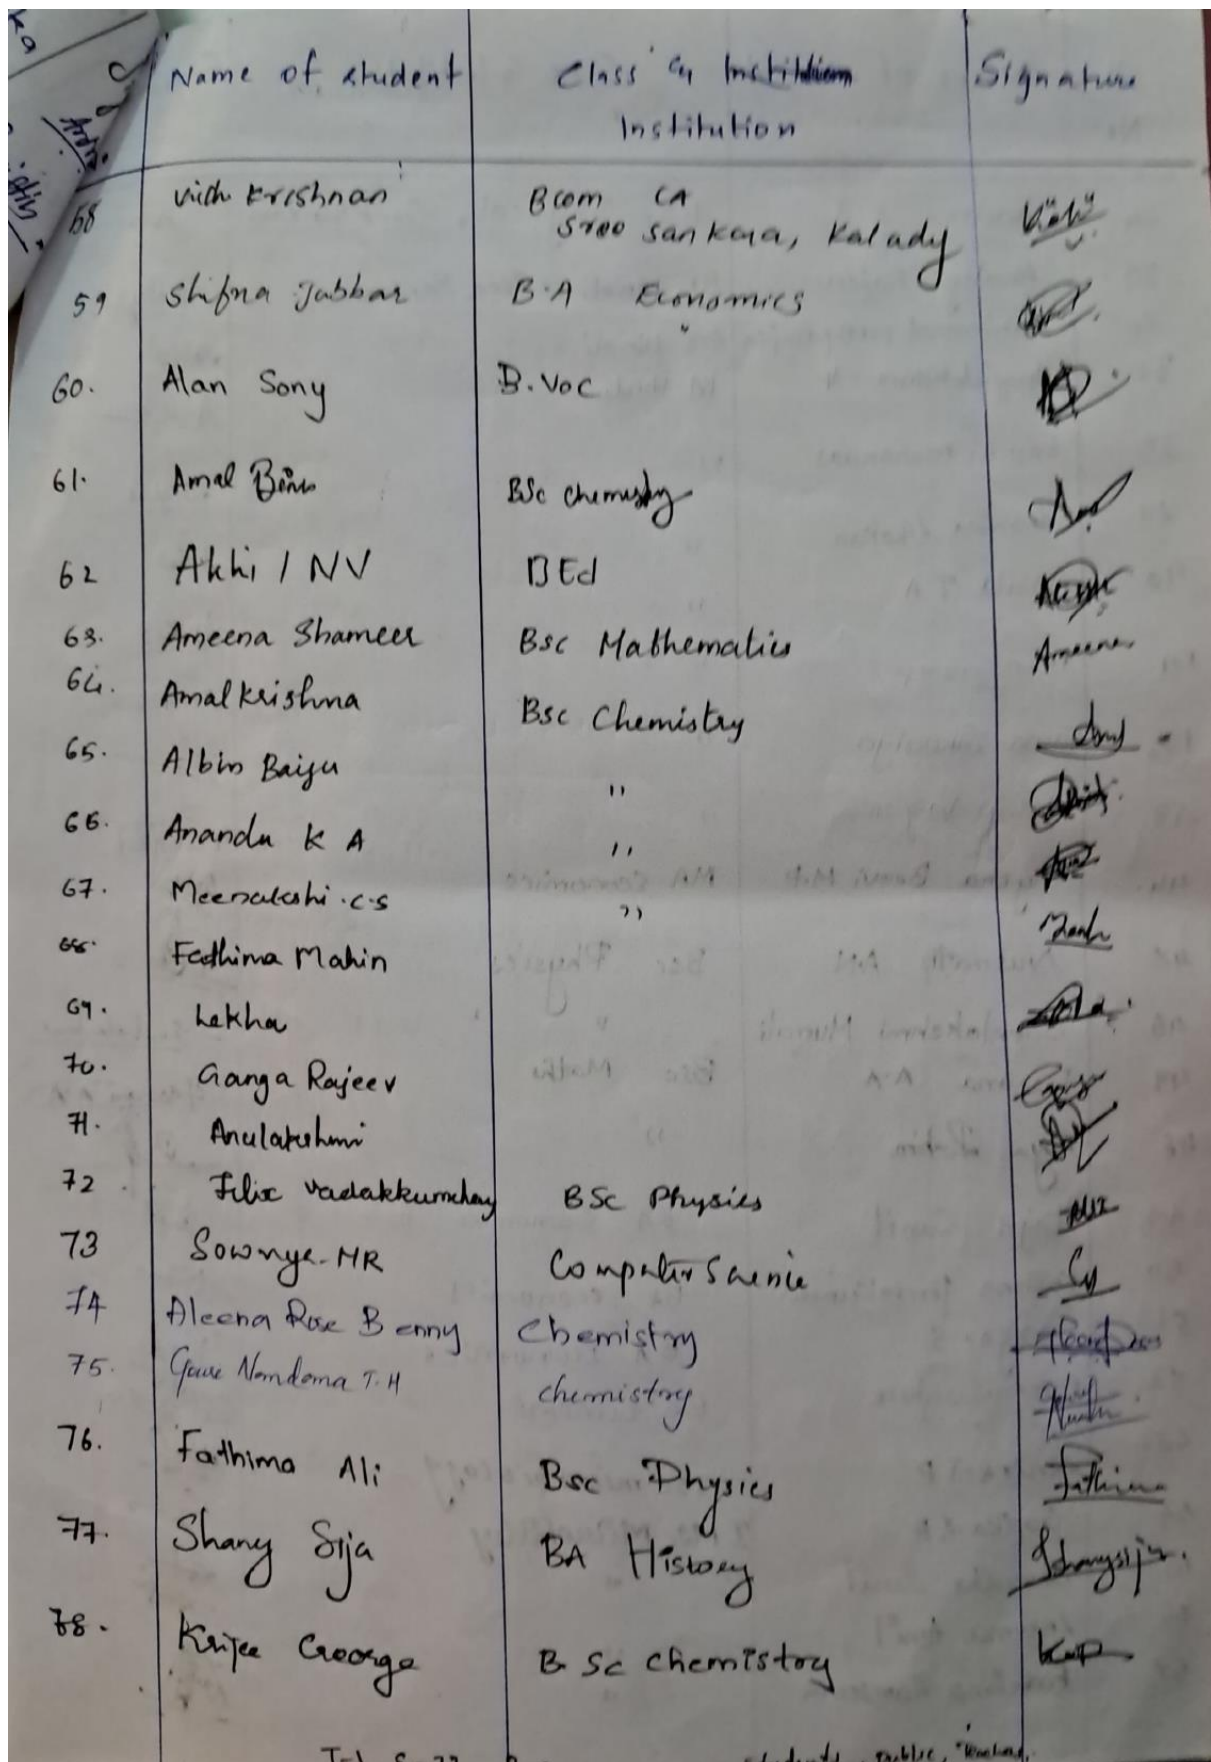 Name of student Class & Institution Signature
Institution
58 Krishnan Bcom CA
Sree Sankara, Kalady
59 Shifna Jabbar B.A Economics
60. Alan Sony B.Voc
61. Amal BSc chemistry
62 Akhil NV BEd
63. Ameena Shameer Bsc Mathematics Ameena
64. Amalkrishna Bsc Chemistry
65. Albin Baiju "
66. Anandu K A "
67. Meenakshi .C.S "
68. Fathima Mahin
69. Lekha
70. Ganga Rajeev
71. Anulakshmi
72 Felix BSc Physics
73 Sowmya MR Computer Science
74 Aleena Rose Benny Chemistry
75. Nandana T.H chemistry
76. Fathima Ali Bsc Physics Fathima
77. Shany Sija BA History Shanysija
78. George B Sc chemistry